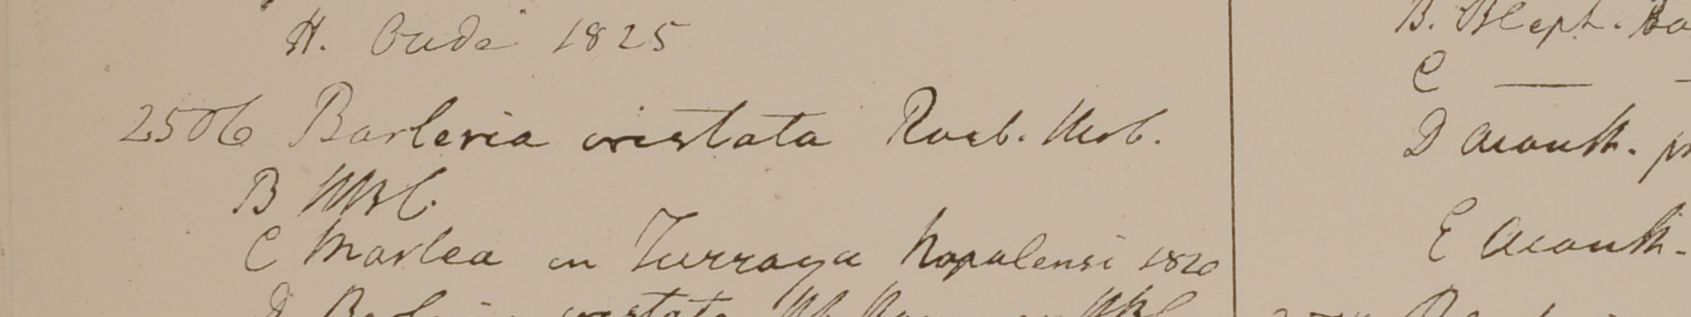 H. Oude 1825
2506 Barleria cristata Roxb. Herb.
B HBC.
C Marlea in Turraya Napalensi 1820
D Barleria cristata HBC
B. Bleph.
C —
D Acanth.
E Acanth.